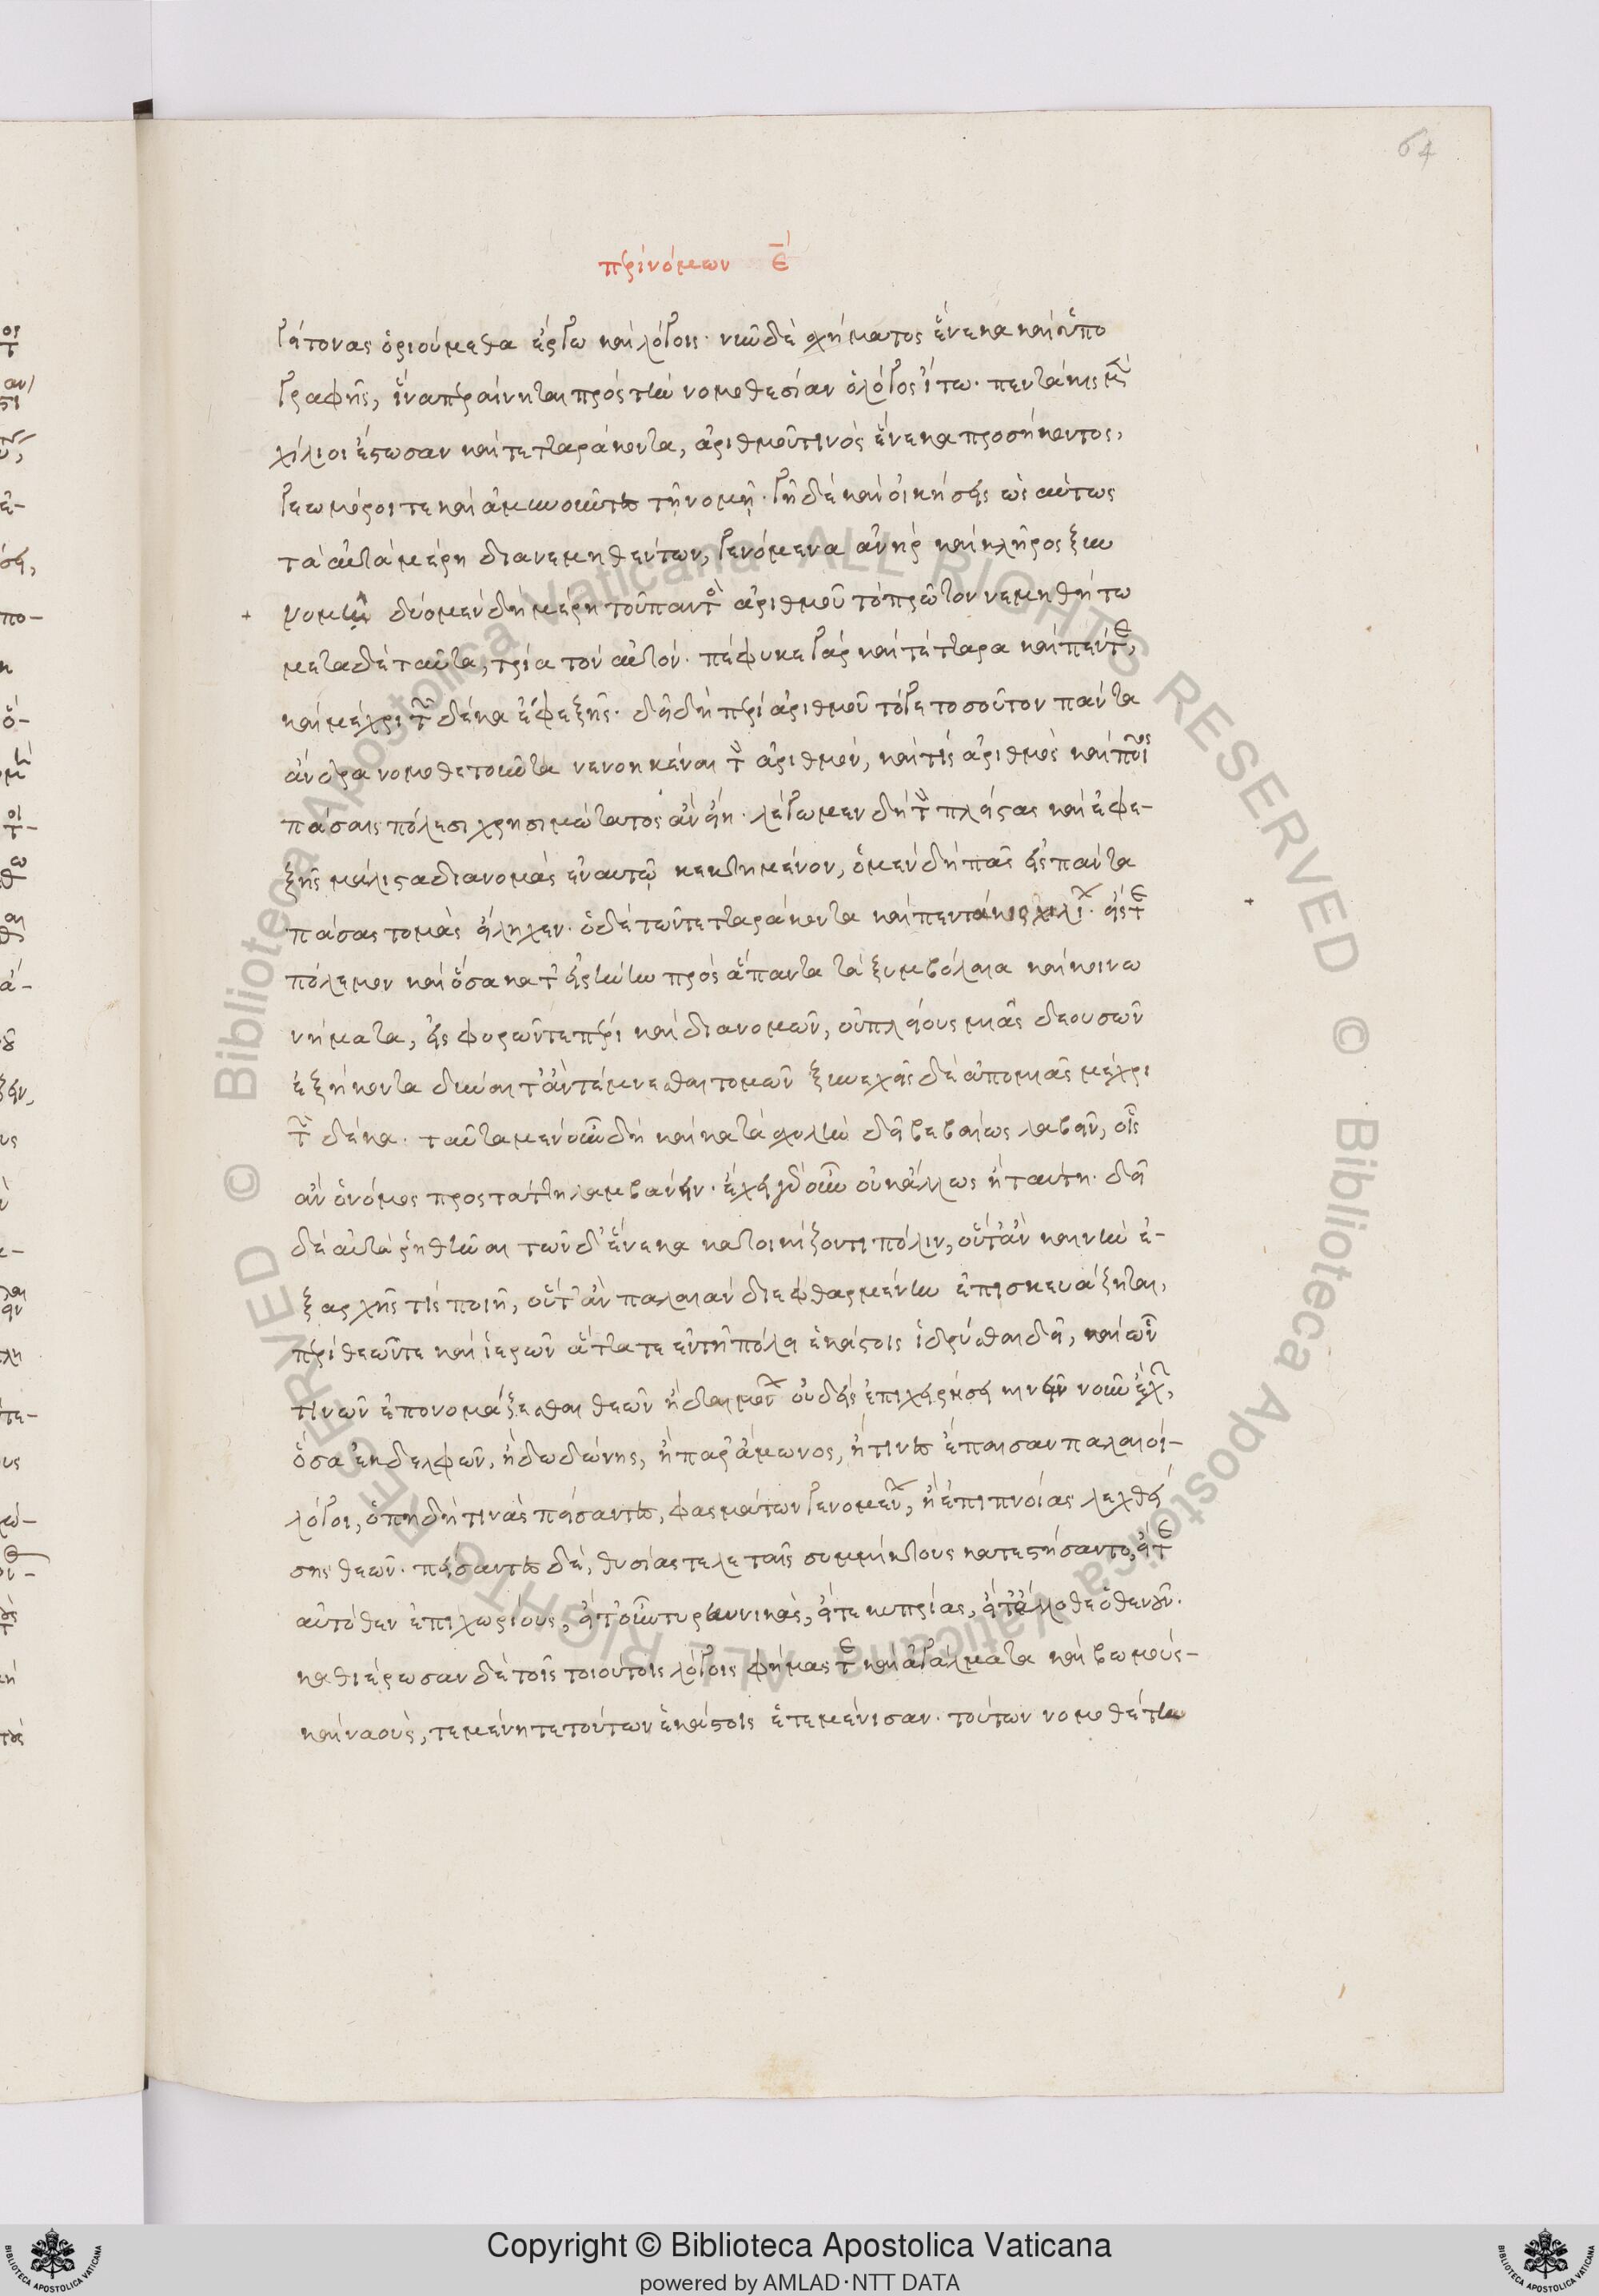 64
περὶ νόμων ε̄
γείτονας ὁριούμεθα ἔργω καὶ λόγοις· νῦν δὲ σχήματος ἕνεκα καὶ ὑπο
γραφῆς, ἵνα περαίνηται πρὸς τὴν νομοθεσίαν ὁ λόγος ἴτω. πεντάκις μὲν
χίλιοι ἔστωσαν καὶ τετταράκοντα, ἀριθμοῦ τινὸς ἕνεκα προσήκοντος,
γεωμόροι τε καὶ ἀμυνοῦντες τῇ νομῇ· γῆ δὲ καὶ οἰκήσεις ὡσαύτως
τὰ αὐτὰ μέρη διανεμηθέντων, γενόμενα ἀνὴρ καὶ κλῆρος ξυν
νομὴ δύο μὲν δὴ μέρη τοῦ παντὸς ἀριθμοῦ τὸ πρῶτον νεμηθήτω
μετὰ δὲ ταῦτα, τρία τὸν αὐτόν. πέφυκε γὰρ καὶ τέτταρα καὶ πέντε,
καὶ μέχρι τῶν δέκα ἐφεξῆς. δεῖ δὴ περὶ ἀριθμοῦ τό γε τοσοῦτον πάντα
ἄνδρα νομοθετοῦντα νενοηκέναι τὸν ἀριθμὸν, καὶ τίς ἀριθμὸς καὶ ποῖος
πάσαις πόλεσι χρησιμώτατος ἂν εἴη. λέγωμεν δὴ τὸν πλείστας καὶ ἐφε-
ξῆς μάλιστα διανομὰς ἐν αυτῷ κεκτημένον, ὁ μὲν δὴ πᾶς εἰς πάντα
πάσας τομὰς εἴληχεν. ὁ δὲ τῶν τετταράκοντα καὶ πεντάκις χιλίων. εἴς τε
πόλεμον καὶ ὅσα κατ εἰρήνην πρὸς ἅπαντα τὰ ξυμβόλαια καὶ κοινω
νήματα, εἰσφορῶν τε πέρι καὶ διανομῶν, οὐ πλείους μιᾶς δεουσῶν
ἑξήκοντα δύναιτ' ἂν τέμνεσθαι τομῶν ξυνεχεῖς δὲ ἀπομιᾶς μέχρι
τῶν δέκα. ταῦτα μὲν οὖν δὴ καὶ κατὰ σχολὴν δεῖ βεβαίως λαβεῖν, οἷς
ἂν ὁ νόμος προστάττη λαμβάνειν. ἔχει γὰρ οὖν οὐκ ἄλλως ἢ ταύτη. δεῖ
δὲ αὐτὰ ῥηθῆναι τῶνδ' ἕνεκα κατοικίζοντι πόλιν, οὔτ' ἂν καινὴν ἐ-
ξαρχῆς τὶς ποιῇ, οὔτ' ἂν παλαιὰν διεφθαρμένην ἐπισκευάζηται,
περὶ θεῶν τε καὶ ἱερῶν ἅττα τε ἐν τῇ πόλει ἑκάστοις ἱδρύσθαι δεῖ, καὶ ὧν
τινῶν ἐπονομάζεσθαι θεῶν ἢ δαιμόνων οὐδεὶς ἐπιχειρήσει κινεῖν νοῦν ἔχων,
ὅσα ἐκ δελφῶν, ἢ δωδώνης, ἢ παρ' ἄμωνος, ἤ τινες ἔπεισαν παλαιοὶ-
λόγοι, ὅπῃ δή τινας πείσαντες, φασμάτων γενομένων, ἢ ἐπιπνοίας λεχθεί
σης θεῶν. πείσαντες δὲ, θυσίας τελεταῖς συμμίκτους κατεστήσαντο, εἴτε
αὐτόθεν ἐπιχωρίους, εἴτ' οὖν τυρρηνικὰς, εἴτε κυπρίας, εἴτ' ἄλλοθεν ὁθενοῦν.
καθιέρωσαν δὲ τοῖς τοιούτοις λόγοις φήμας τε καὶ ἀγάλματα καὶ βωμοὺς-
καὶ ναοὺς, τεμένη τε τούτων ἑκάστοις ἐτεμένισαν. τούτων νομοθέτη
Copyright © Biblioteca Apostolica Vaticana
powered by AMLAD·NTT DATA
© Biblioteca Apostolica Vaticana ALL RIGHTS RESERVED © Biblioteca Apostolica Vaticana ALL RIGHTS RESERVED